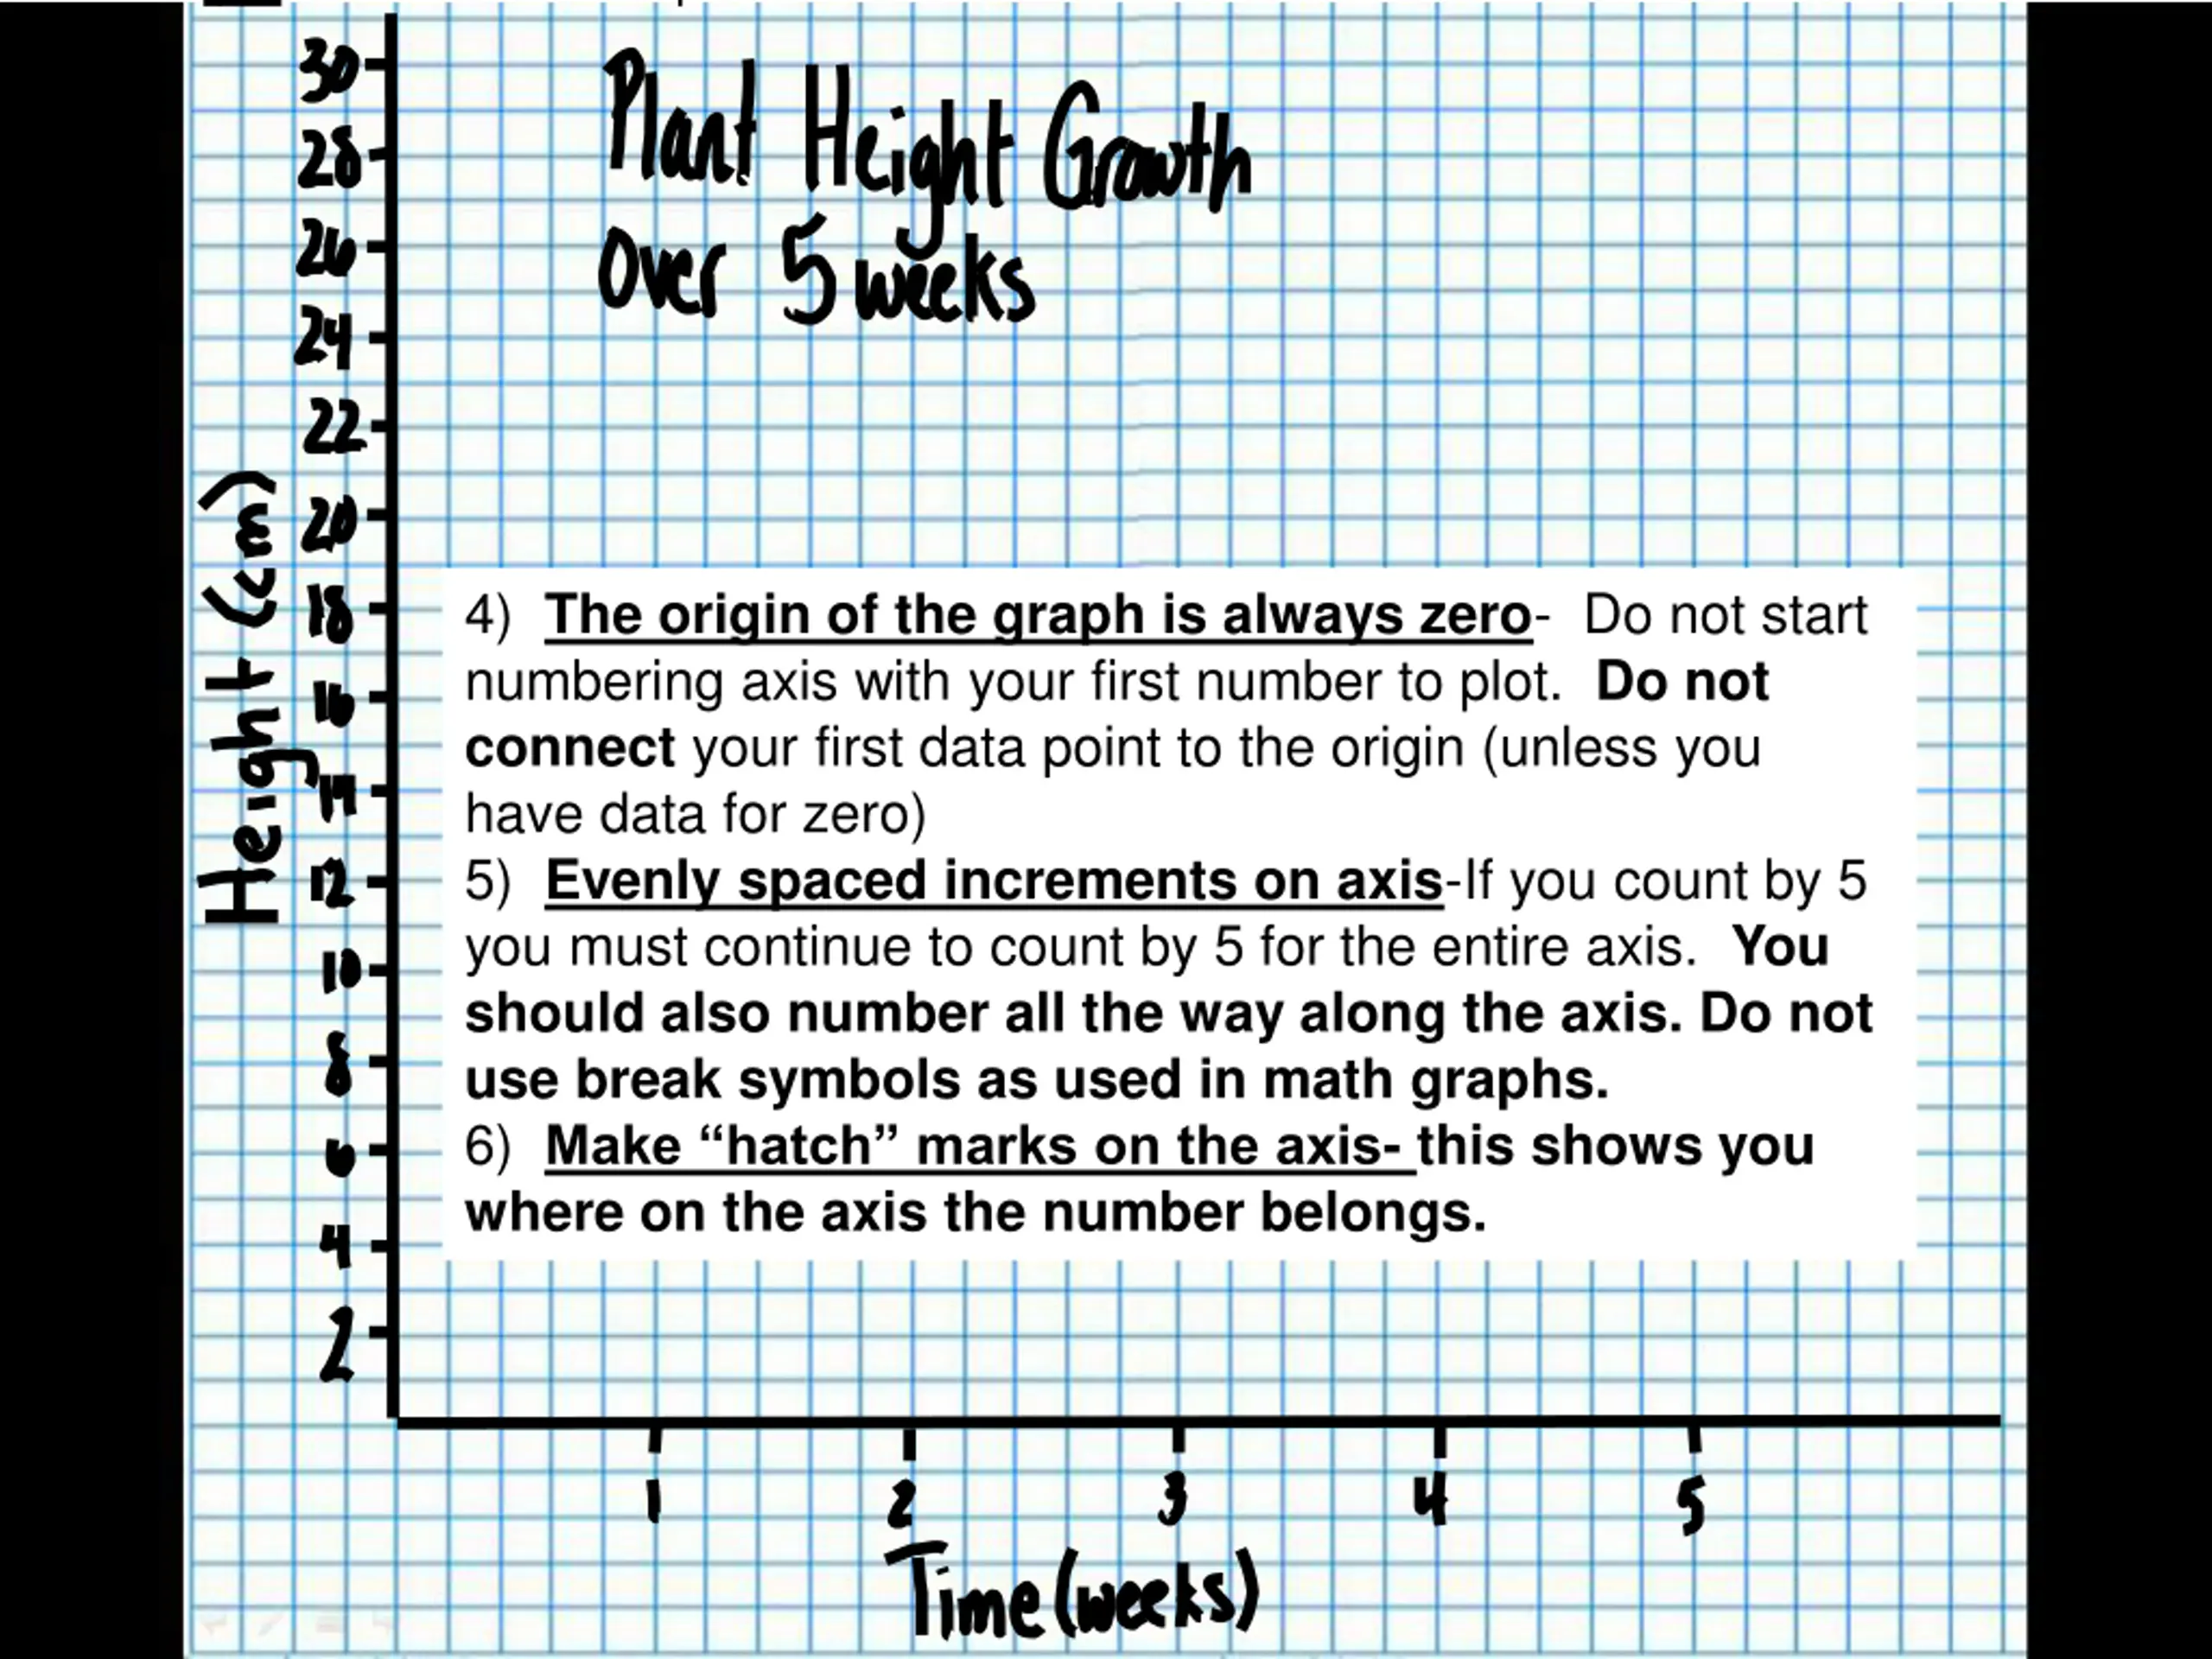 Plant Height Growth
over 5 weeks
30
28
26
24
22
20
18
16
14
12
10
8
6
4
2
Height (cm)
4) The origin of the graph is always zero- Do not start
numbering axis with your first number to plot. Do not
connect your first data point to the origin (unless you
have data for zero)
5) Evenly spaced increments on axis-If you count by 5
you must continue to count by 5 for the entire axis. You
should also number all the way along the axis. Do not
use break symbols as used in math graphs.
6) Make “hatch” marks on the axis- this shows you
where on the axis the number belongs.
1 2 3 4 5
Time (weeks)